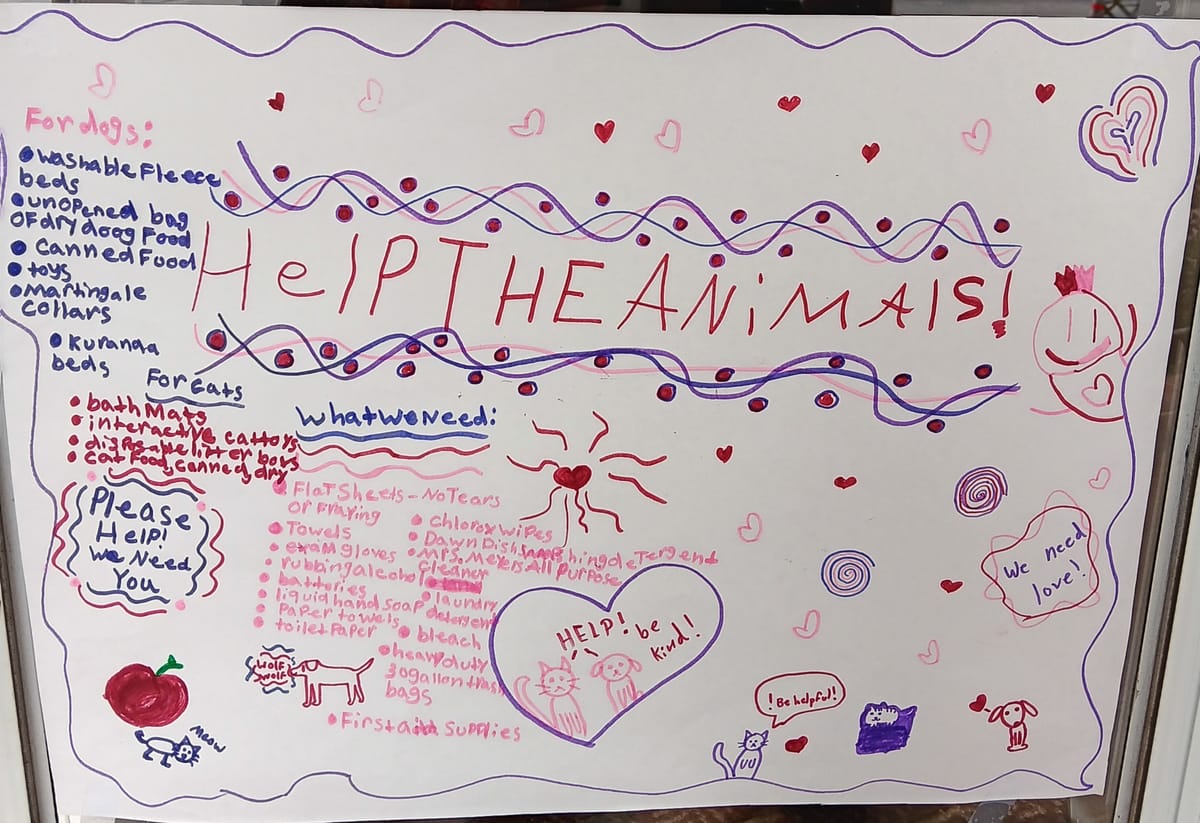 For dogs:
• Washable Fleece
beds
• unopened bag
OF dry doog Food
• Canned Food
• toys
• Martingale
Collars
• Kuranda
beds
HelP THE ANiMAlS!
For Cats
• bath Mats
• interactive cat toys
• disposable litter boxs
• Cat Food, canned, dry
Please
HELP!
We Need
You
What We Need:
• Flat Sheets - No Tears
or Fraying
• Towels
• exam gloves
• rubbing alcohol
• batteries
• liquid hand soap
• Paper towels
• toilet Paper
• Chlorox wipes
• Dawn Dish
• Mrs. Meyers All Purpose
Cleaner
• laundry
detergent
• bleach
• heavy duty
30 gallon trash
bags
• First aid Supplies
HELP! be
kind!
We need
love!
Wolf
Wolf
Meow
! Be helpful!